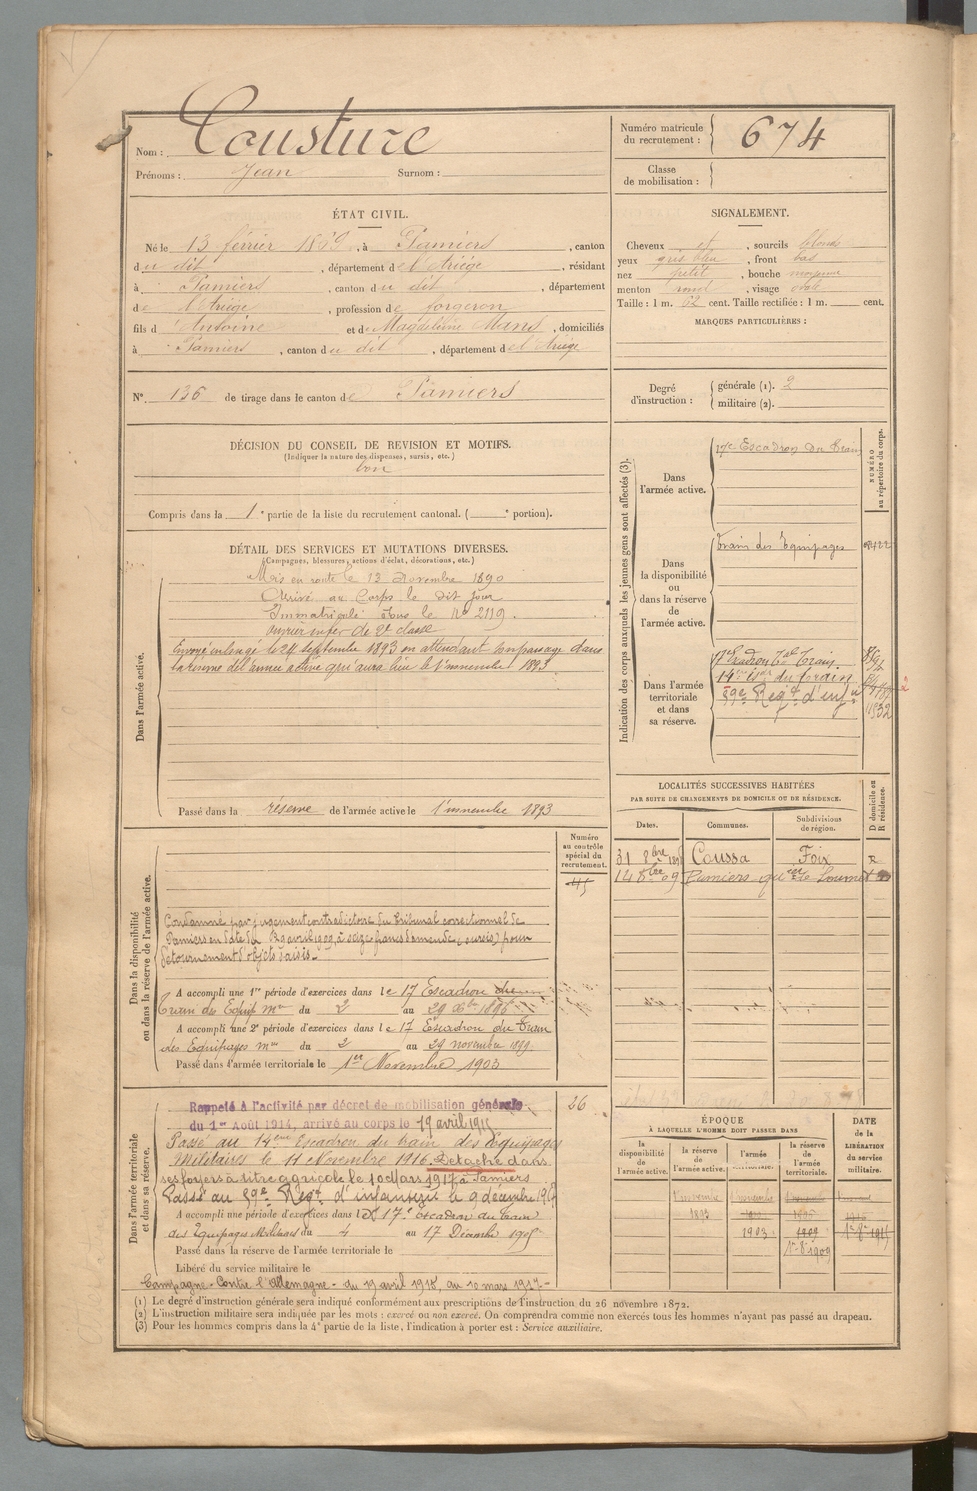 Nom : Cousture
Prénoms : Jean Surnom :
Numéro matricule du recrutement : 674
Classe de mobilisation :
ÉTAT CIVIL.
Né le 13 février 1869, à Pamiers, canton
du dit, département de l'Ariège, résidant
à Pamiers, canton du dit, département
de l'Ariège, profession de forgeron
fils d'Antoine et de Magdeleine Mans, domiciliés
à Pamiers, canton du dit, département de l'Ariège
SIGNALEMENT.
Cheveux et, sourcils blonds
yeux gris bleu, front bas
nez petit, bouche moyenne
menton rond, visage ovale
Taille : 1 m. 62 cent. Taille rectifiée : 1 m. cent.
MARQUES PARTICULIÈRES :
N° 136 de tirage dans le canton de Pamiers
Degré d'instruction : générale (1). 2
militaire (2).
DÉCISION DU CONSEIL DE REVISION ET MOTIFS.
(Indiquer la nature des dispenses, sursis, etc.)
bon
Compris dans la 1e partie de la liste du recrutement cantonal. (e portion).
DÉTAIL DES SERVICES ET MUTATIONS DIVERSES.
(Campagnes, blessures, actions d'éclat, décorations, etc.)
Dans l'armée active.
Mis en route le 13 Novembre 1890
Arrivé au Corps le dit jour
Immatriculé sous le No 2119.
ouvrier infer de 2e classe
Envoyé en congé le 24 septembre 1893 en attendant son passage dans
la réserve de l'armée active qui aura lieu le 1er novembre 1893
Passé dans la réserve de l'armée active le 1er novembre 1893
Indication des corps auxquels les jeunes gens sont affectés (3).
NUMÉRO au répertoire du corps.
Dans l'armée active.
17e Escadron du Train
Dans la disponibilité ou dans la réserve de l'armée active.
Train des Equipages
Dans l'armée territoriale et dans sa réserve.
17e Escadron Tal Train
14e du train
59e Regt d'inf
LOCALITÉS SUCCESSIVES HABITÉES
PAR SUITE DE CHANGEMENTS DE DOMICILE OU DE RÉSIDENCE.
Dates. Communes. Subdivisions de région. D domicile ou R résidence.
31 8bre Coussa Foix R
14 8bre 09 Pamiers
Numéro au contrôle spécial du recrutement.
45
Dans la disponibilité ou dans la réserve de l'armée active.
Condamné par jugement contradictoire du tribunal correctionnel de
Pamiers en date du 29 avril 1902 à seize francs d'amende (sursis) pour
détournement d'objets saisis.
A accompli une 1re période d'exercices dans le 17 Escadron du
Train des Equip mres du 2 au 29 9bre 1896
A accompli une 2e période d'exercices dans le 17 Escadron du Train
des Equipages mres du 2 au 29 novembre 1899
Passé dans l'armée territoriale le 1er Novembre 1903
Dans l'armée territoriale et dans sa réserve.
26
Rappelé à l'activité par décret de mobilisation générale
du 1er Août 1914, arrivé au corps le 19 avril 1915
Passé au 14ème Escadron du train des Equipages
Militaires le 11 Novembre 1916. Détaché dans
ses foyers à titre agricole le 10 Mars 1917 à Pamiers
Passé au 59e Regt d'infanterie le 9 décembre 1917
A accompli une période d'exercices dans le 17e Escadron du train
des Equipages Militaires du 4 au 17 Décembre 1905
Passé dans la réserve de l'armée territoriale le
Libéré du service militaire le
Campagne Contre l'Allemagne - du 19 avril 1915, au 10 mars 1917 -
ÉPOQUE
À LAQUELLE L'HOMME DOIT PASSER DANS
la disponibilité de l'armée active.
la réserve de l'armée active.
l'armée territoriale.
la réserve de l'armée territoriale.
DATE de la LIBÉRATION du service militaire.
1er novembre novembre
1893
1903 1909
1er 8bre 1909
(1) Le degré d'instruction générale sera indiqué conformément aux prescriptions de l'instruction du 26 novembre 1872.
(2) L'instruction militaire sera indiquée par les mots : exercé ou non exercé. On comprendra comme non exercés tous les hommes n'ayant pas passé au drapeau.
(3) Pour les hommes compris dans la 4e partie de la liste, l'indication à porter est : Service auxiliaire.